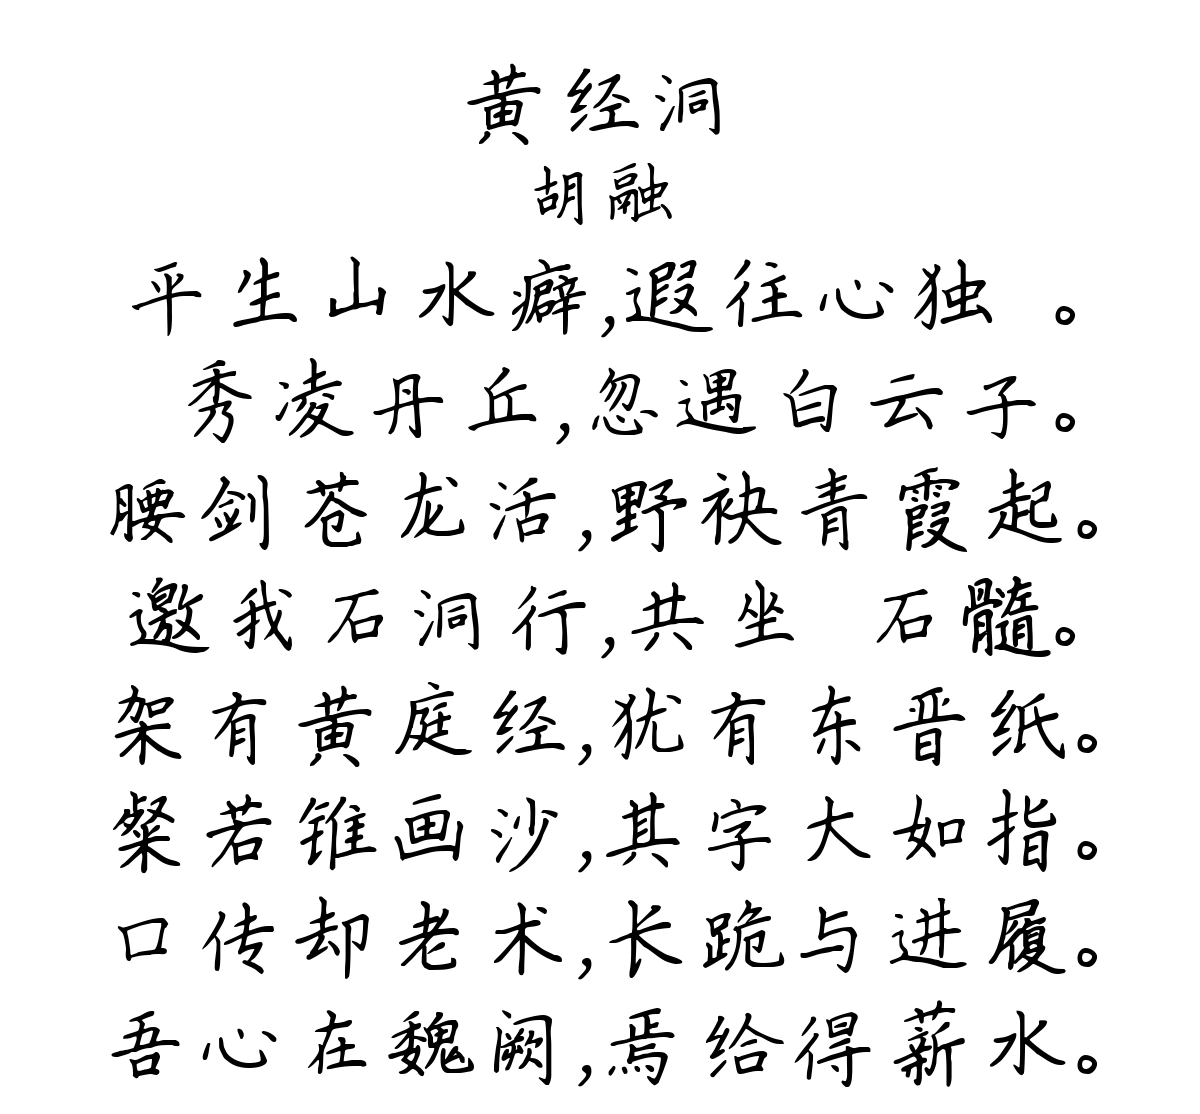 黄经洞
胡融
平生山水癖,遐往心独 。
秀凌丹丘,忽遇白云子。
腰剑苍龙活,野袂青霞起。
邀我石洞行,共坐 石髓。
架有黄庭经,犹有东晋纸。
粲若锥画沙,其字大如指。
口传却老术,长跪与进履。
吾心在魏阙,焉给得薪水。